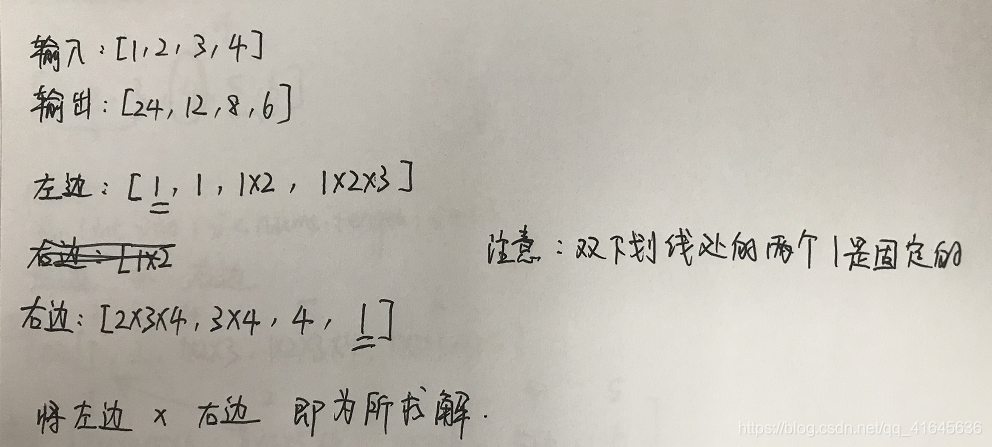 输入：[1, 2, 3, 4]
输出：[24, 12, 8, 6]
左边：[1, 1, 1×2, 1×2×3]
右边：[1×2
注意：双下划线处的两个1是固定的
右边：[2×3×4, 3×4, 4, 1]
将左边 × 右边 即为所求解.
https://blog.csdn.net/qq_41645636